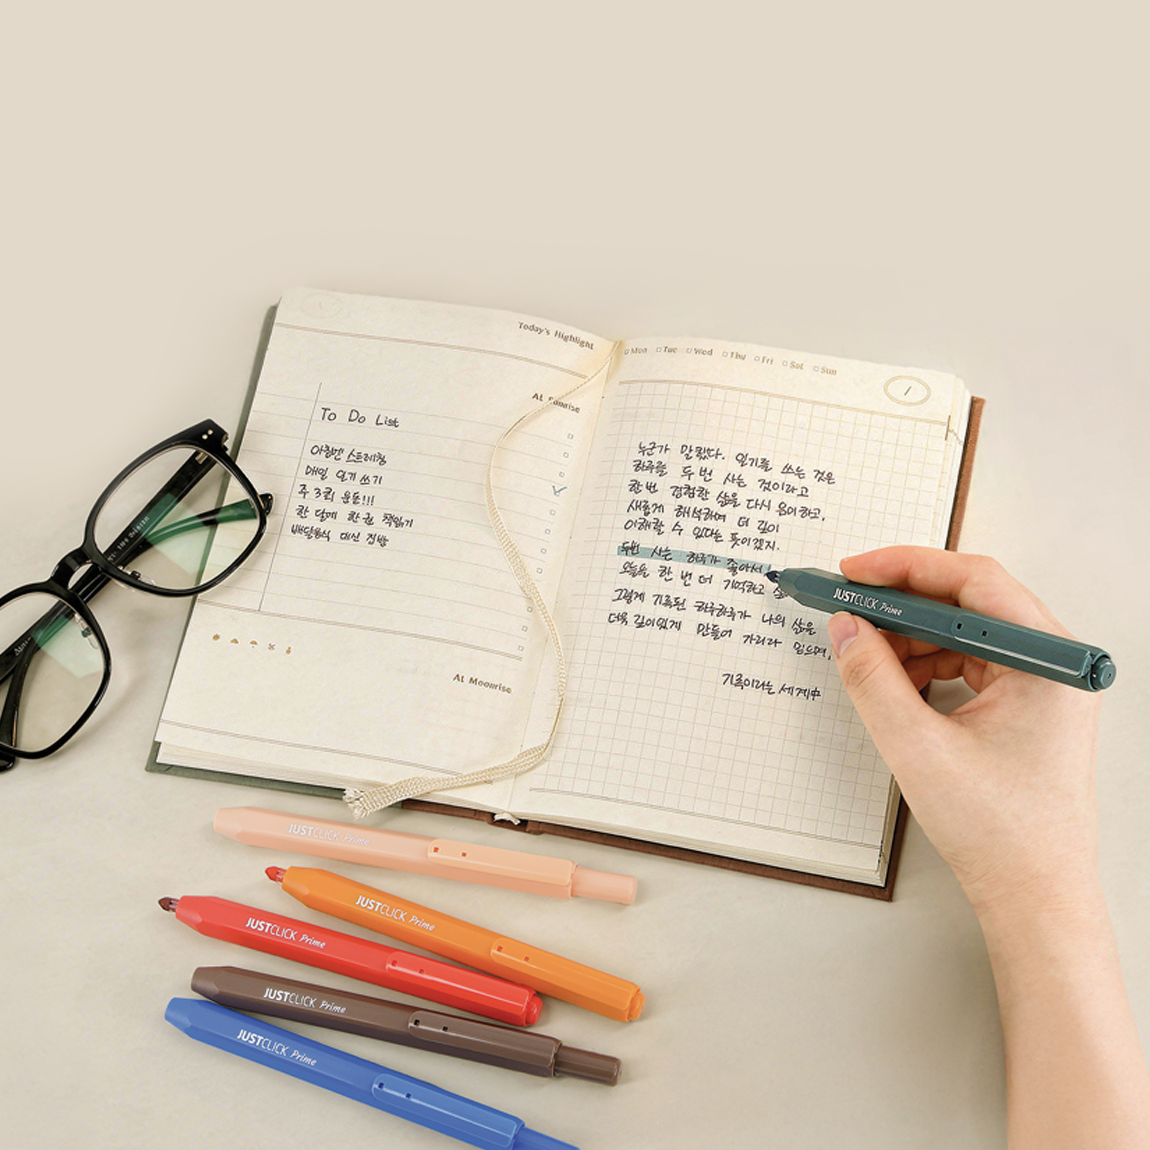 Today's Highlight
At Sunrise
To Do List
아침엔 스트레칭
매일 일기 쓰기
주 3회 운동!!!
한 달에 한 권 책읽기
배달음식 대신 집밥
At Moonrise
Mon Tue Wed Thu Fri Sat Sun
1
누군가 말했다. 일기를 쓰는 것은
하루를 두 번 사는 것이라고
한 번 경험한 삶을 다시 음미하고,
새롭게 해석하며 더 깊이
이해할 수 있다는 뜻이겠지.
두번 사는 하루가 좋아서
오늘을 한 번 더 기억하고
그렇게 기록된 하루하루가 나의 삶을
더욱 깊이있게 만들어 가리라 믿으며,
기록이라는 세계中
JUSTCLICK Prime
JUSTCLICK Prime
JUSTCLICK Prime
JUSTCLICK Prime
JUSTCLICK Prime
JUSTCLICK Prime